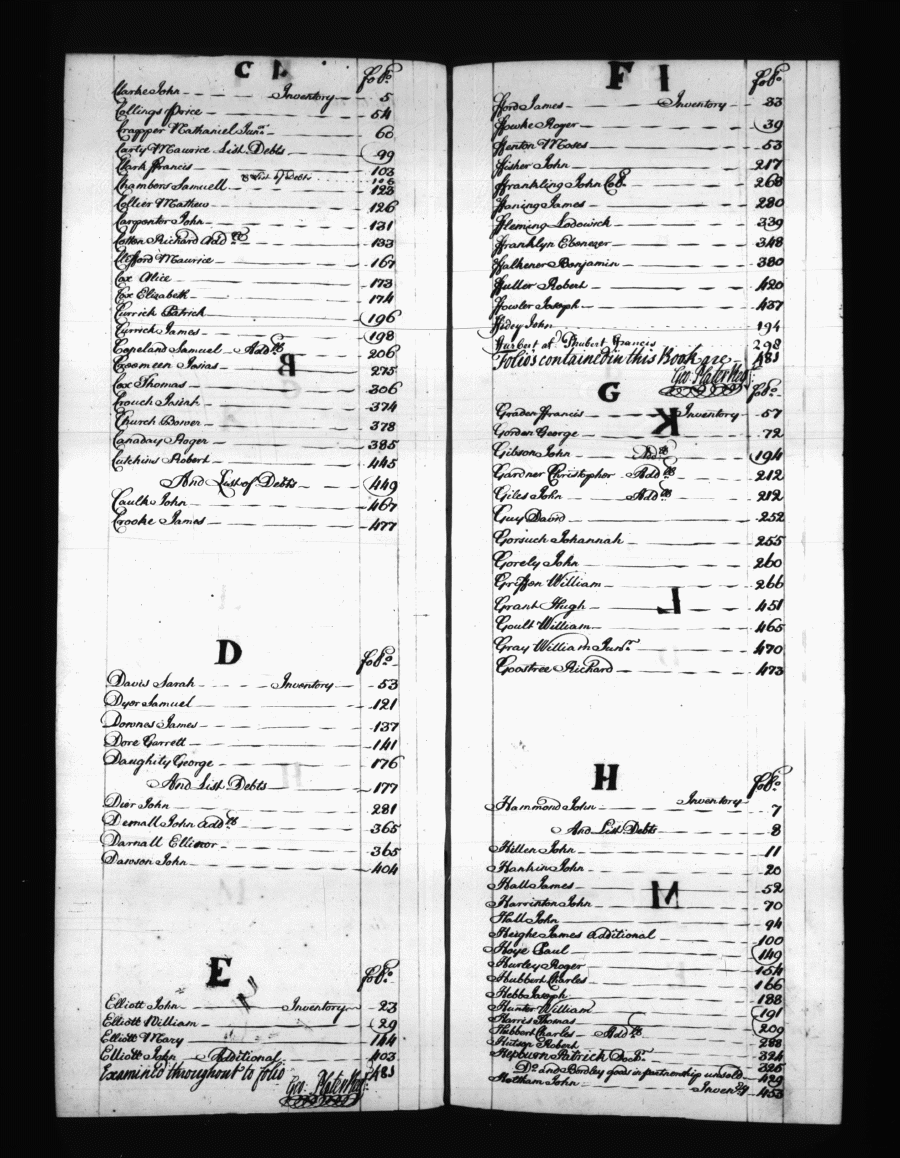 C
fo.o
Clarke John Inventory 5
Collings Price 54
Crapper Nathaniel Junr. 60
Carty Maurice List Debts 99
Clark Francis 103
& List of Debts 106
Chambers Samuell 123
Collier Mathew 126
Carpenter John 131
Cotton Richard Addll 133
Clifford Maurice 167
Cox Alice 173
Cox Elizabeth 174
Currick Patrick 196
Currick James 198
Copeland Samuel Addll 206
Croomeen Josias 275
Cox Thomas 306
Crouch Josiah 374
Church Bower 378
Canaday Roger 385
Cutchins Robert 445
And List of Debts 449
Caulk John 467
Crooke James 477
D
fo.o
Davis Sarah Inventory 53
Dyer Samuel 121
Downes James 137
Dore Garrett 141
Daughity George 176
And List Debts 177
Dier John 281
Dernall John Addll 365
Darnall Ellinor 365
Dawson John 404
E
fo.o
Elliott John Inventory 23
Elliott William 29
Elliott Mary 144
Elliott John Additional 403
Examined throughout to folio 481
Geo. Plater Regr.
F
fo.o
Fford James Inventory 33
Ffowke Roger 39
Ffenton Moses 53
Ffisher John 217
Ffrankling John Colo. 268
Ffaning James 280
Ffleming Lodowick 339
Ffranklyn Ebenezer 348
Ffalkener Benjamin 380
Ffuller Robert 420
Ffowler Joseph 437
Ffidey John 194
Hurbert als. Phubert Francis 298
Folios contained in this Book are 481
Geo. Plater Regr.
G
fo.o
Graden Francis Inventory 57
Gorden George 72
Gibson John Addll 194
Gardner Christopher Addll 212
Giles John Addll 212
Guy David 252
Gorsuch Johannah 255
Gorely John 260
Griffen William 266
Grant Hugh 451
Goult William 465
Gray William Junr. 470
Goostree Richard 473
H
fo.o
Hammond John Inventory 7
And List Debts 8
Hillen John 11
Hankin John 20
Hall James 52
Harrinton John 70
Hall John 94
Heighe James Additional 100
Hoye Paul 149
Hurley Roger 154
Hubbert Charles 166
Hebb Joseph 188
Hunter William 191
Harris Thomas
Hebbert Charles Addll 209
Hutson Robert 288
Hepburn Patrick Docr. 324
Do. and Bordley goods in partnership unsold 325
429
Mottham John Inveny 453